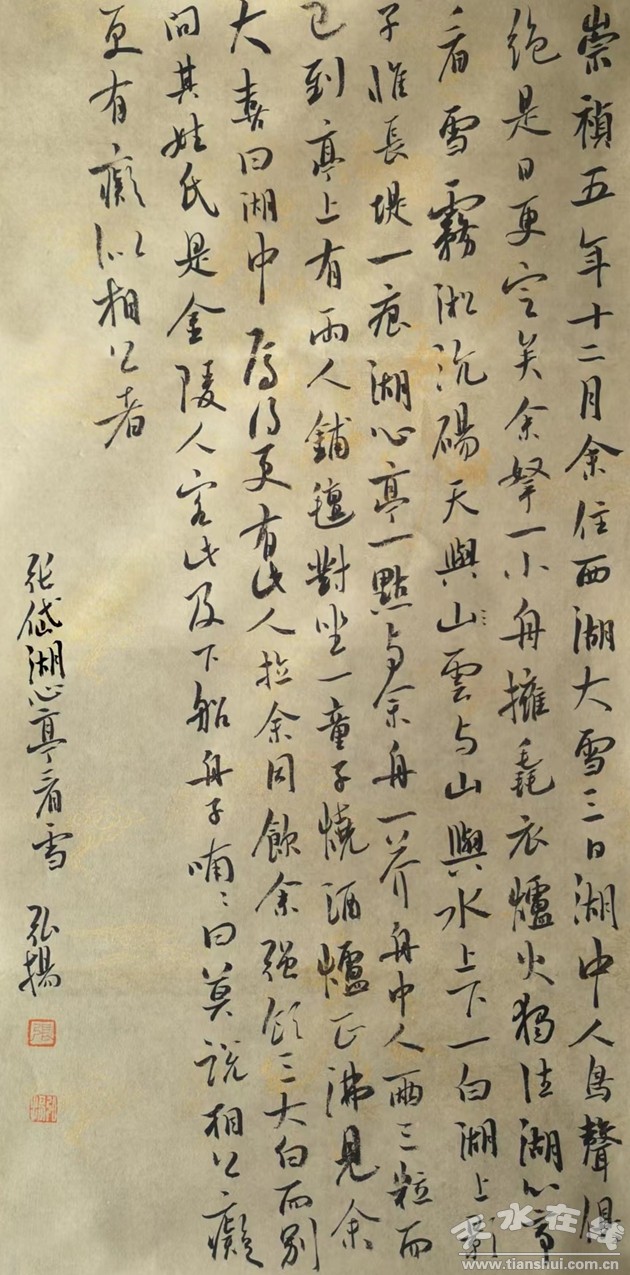 崇禎五年十二月余住西湖大雪三日湖中人鳥聲俱
絶是日更定矣余拏一小舟擁毳衣爐火獨往湖心亭
看雪霧淞沆碭天與山雲与山與水上下一白湖上影
子惟長堤一痕湖心亭一點与余舟一芥舟中人兩三粒而
已到亭上有兩人鋪氈對坐一童子燒酒爐正沸見余
大喜曰湖中焉得更有此人拉余同飲余强飲三大白而别
問其姓氏是金陵人客此及下船舟子喃〻曰莫説相公癡
更有癡似相公者
張岱湖心亭看雪 弘揚
天水在线
www.tianshui.com.cn